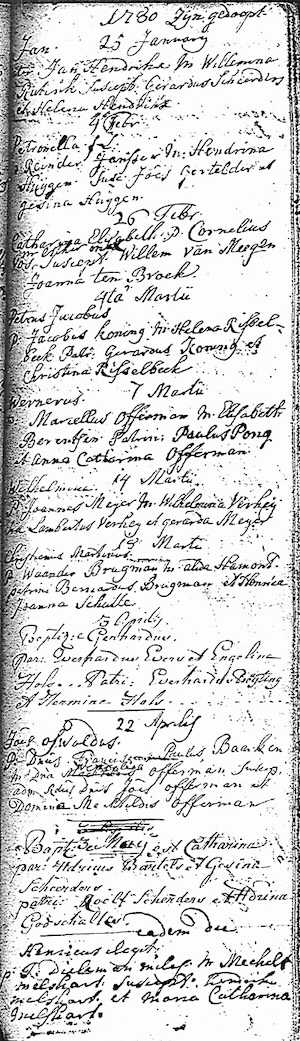 1780 Zyn gedoopt
25 January
Jan.
Jan Hendrikse M Willemina
Rutink Suscept. Gerardus Scheerders
et Helena Hendrikse
4 Febr
Petronella
P. Reinder Janssen M. Hendrina
Huygen Susc. Joës Gertelder et
gesina Huygen.
26 Febr
Catharina Elisabeth. P. Cornelius
Vos Suscept. Willem van Meegen
Joanna ten Broek
4ta Martii
Petrus Jacobus
P. Jacobus Koning M Helena Risbel-
beck Patr. Gerardus Koning et
Christina Risselbeck
7 Martii
Wernerus.
P. Marcellus Offerman M Elisabeth
Berentsen Patrin: Paulus Pong
et Anna Catharina Offerman
14 Martii
Wilhelmina
P. Joannes Meyer M Wilhelmina Verheij
Lambertus Verheij et gerarda Meyer
Martii
P. Waander Brugman M alida Hamond
petrini Bernardus Brugman et Henrica
Joanna Schulte
3 Aprilis
Baptiz: e Gerhardus.
par: Everhardus Evers et Engelina
Hols. Patri: Everhardus
et Hermina Hols
22 Aprilis
Joës Oswoldus.
P. Dnus Paulus Baacken
M Dna Offerman Suscep.
adm Rdus dnus Joës Offerman et
Domina Mechtildis Offerman
Bapt: est Catharina
par: Adrianus Bartels et Gesina
Schoenders
patri: Roelf Schonders et Adriana
Godschalks
eadem die
Henricus
P. J. Dieleman miles M Mechelt
melshart suscept. Hendrik
melshart et maria Catharina
melshart